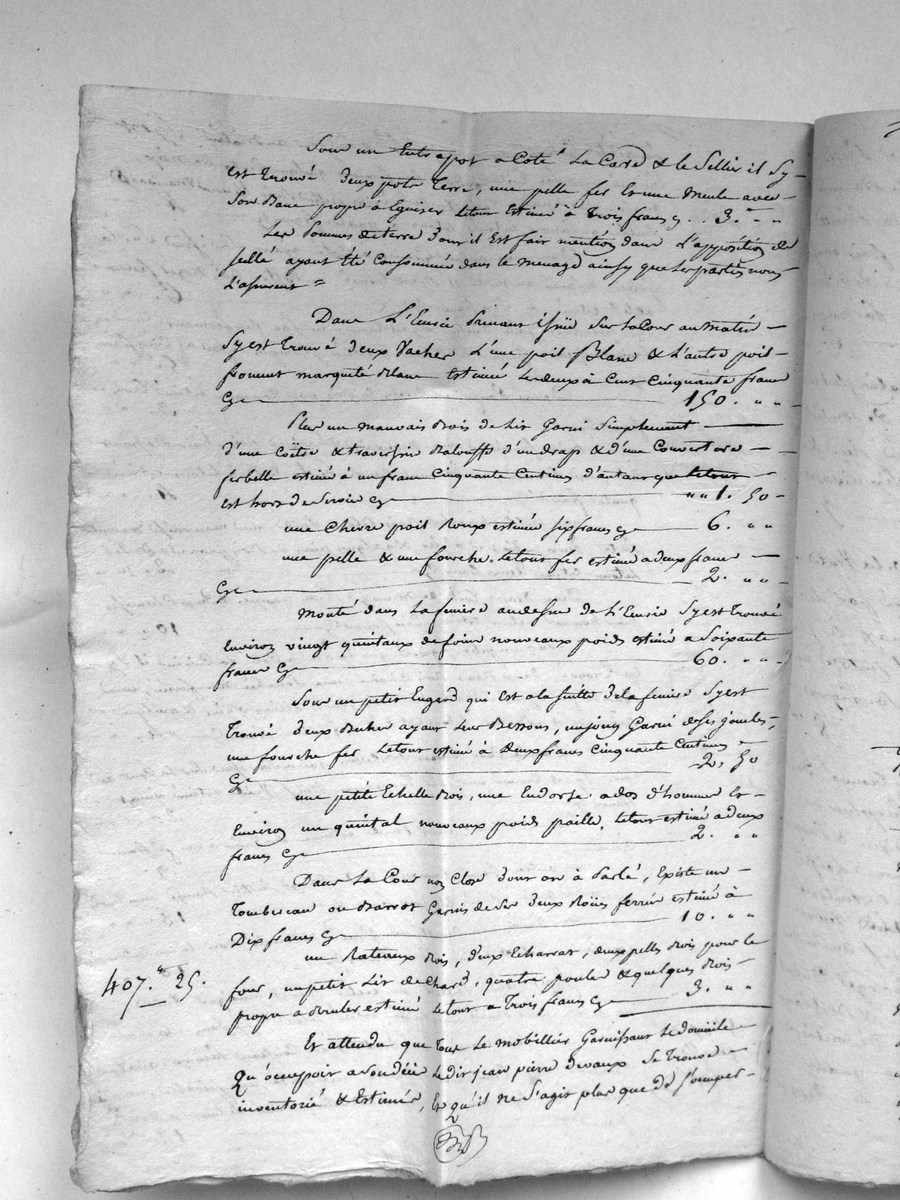 Sous un Entrepot a Coté La Cave & le Sellier il Sy-
est trouvé deux pots terre, une pelle fer Et une Meule avec-
Son Banc propre à Eguiser letout Estimé à Trois francs Cy .. 3. " "
Les Pommes de terre dont il Est fait mention dans L'apposition de
scellé ayant Été Consommées dans le menage ainsy que les parties nous-
L'assurent =
Dans L'Ecurie Prenant issüe Sur la Cour au matin -
Sy est trouvé deux Vaches L'une poil Blanc & L'autre poil-
froment marqueté Blanc Estimées les deux à Cent Cinquante francs
Cy 150. " "
Plus un mauvais Bois de lit Garni Simplement
d'une Coëtre & traversin Balouffe d'un drap & d'une Couverture -
estimé à un franc Cinquante Centimes d'autant que letout
est hors de Service Cy " " 1. 50 -
une Chevre poil Roux estimée six francs Cy 6. " "
une pelle & une fourche letout fer estimé a deux francs
Cy 2. " " -
Monté dans la feniere au dessus de L'Ecurie Sy est trouvé
Environ vingt quintaux de foin nouveaux poids estimé a Soixante
francs Cy 60. " " -
Sous un petit Engard qui est a la suitte de la feniere Sy est
trouvé deux ayant leur Bessons, un joug Garni de ses joucles,
une fourche fer letout estimé à deux francs Cinquante Centimes
Cy 2. 50
une petite Echelle Bois, une Endorse a dos d'homme Et-
Environ un quintal nouveaux poids paille, letout estimé a deux
francs Cy 2. " "
Dans la Cour non Close dont on à Parlé, Existe un -
Tombereau ou Barrot Garnis de Ses deux Roües ferrées estimé à
Dix francs Cy 10. " "
un Rateaux Bois, deux Echarras, deux pelles Bois pour le
407.# 25.
four, un petit Lit de Chard, quatre poules & quelques Bois-
propre a Bruler estimé letout a Trois francs Cy 3. " "
Et attendu que Tout le mobillier Garnissant le domicile
Qu'occupoit a ledit jean pierre devaux Se Trouve -
inventorié & Estimé, Et qu'il ne S'agit plus que de